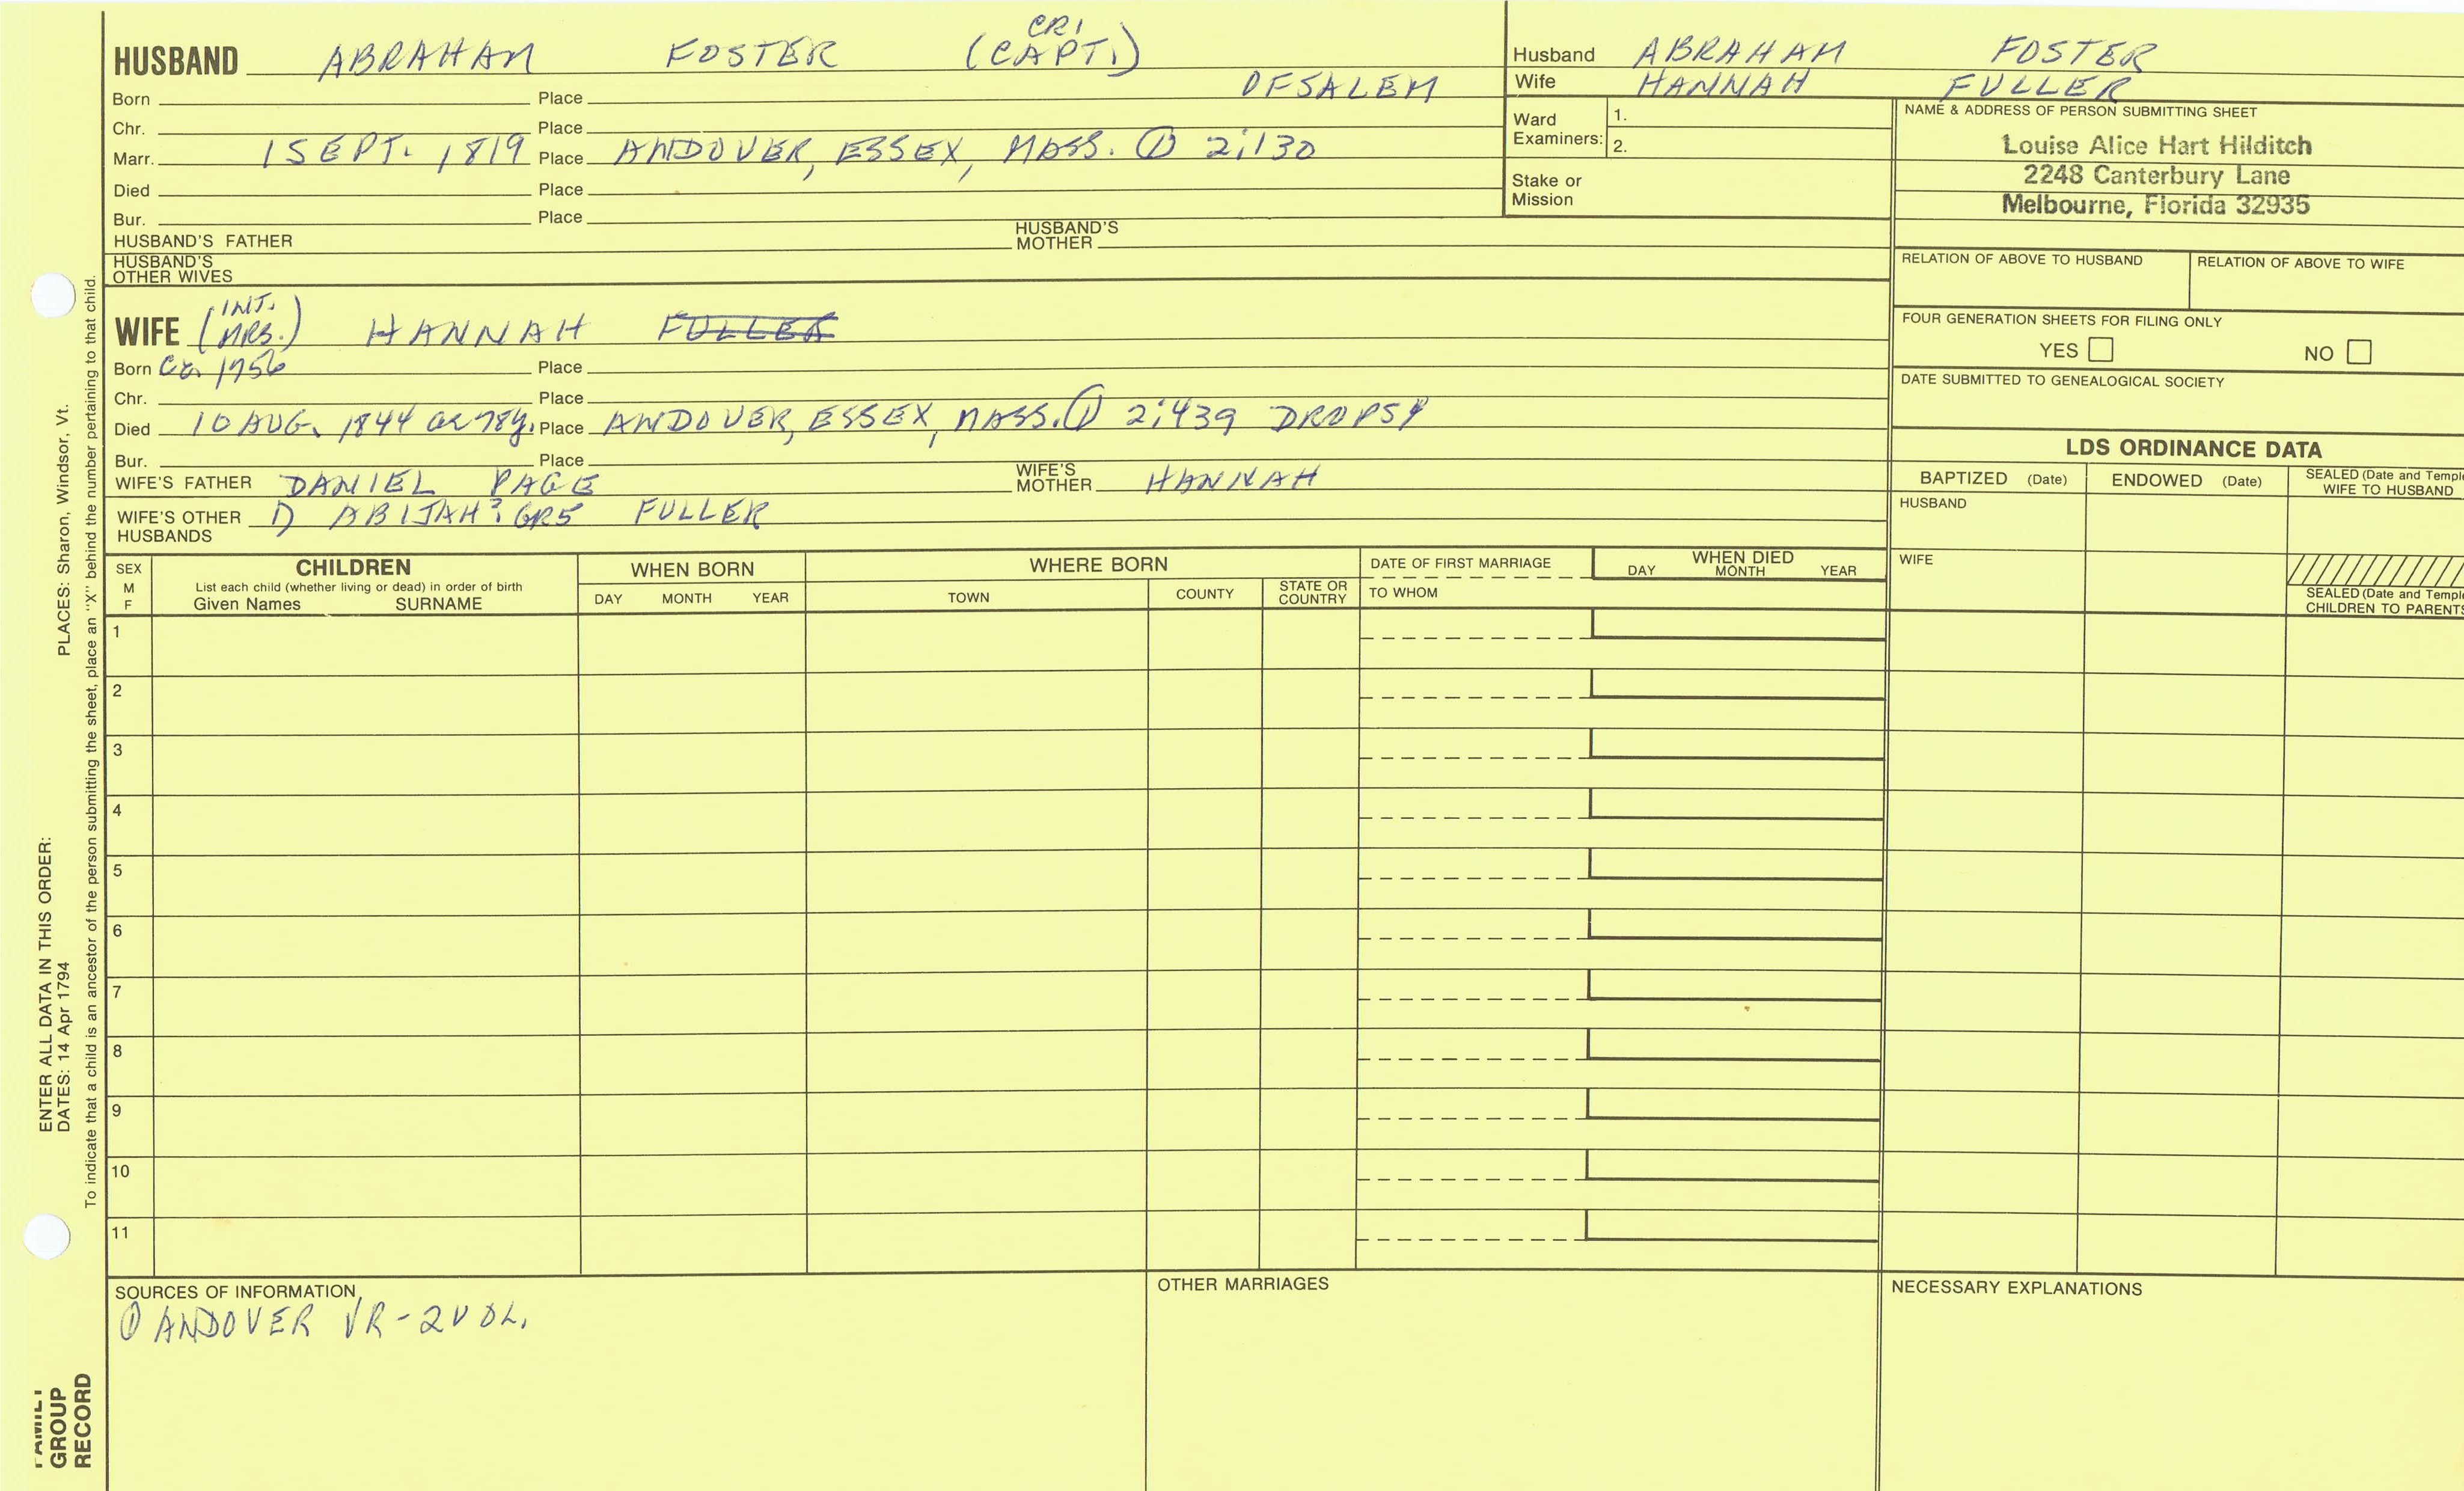 HUSBAND ABRAHAM FOSTER (CAPT.) CR1
OF SALEM
Born Place
Chr. Place
Marr. 1 SEPT. 1819 Place ANDOVER, ESSEX, MASS. ① 2;130
Died Place
Bur. Place
HUSBAND'S FATHER HUSBAND'S MOTHER
HUSBAND'S OTHER WIVES
Husband ABRAHAM FOSTER
Wife HANNAH FULLER
Ward Examiners: 1.
2.
Stake or Mission
NAME & ADDRESS OF PERSON SUBMITTING SHEET
Louise Alice Hart Hilditch
2248 Canterbury Lane
Melbourne, Florida 32935
RELATION OF ABOVE TO HUSBAND RELATION OF ABOVE TO WIFE
FOUR GENERATION SHEETS FOR FILING ONLY
YES NO
DATE SUBMITTED TO GENEALOGICAL SOCIETY
WIFE (INT. MRS.) HANNAH FULLER
Born Ca. 1756 Place
Chr. Place
Died 10 AUG. 1844 ae 78y. Place ANDOVER, ESSEX, MASS. ① 2;439 DROPSY
Bur. Place
WIFE'S FATHER DANIEL PAGE WIFE'S MOTHER HANNAH
WIFE'S OTHER HUSBANDS 1) ABIJAH? GR5 FULLER
LDS ORDINANCE DATA
BAPTIZED (Date) ENDOWED (Date) SEALED (Date and Templ
WIFE TO HUSBAND
HUSBAND
WIFE
SEALED (Date and Templ
CHILDREN TO PARENTS
SEX M F
CHILDREN
List each child (whether living or dead) in order of birth
Given Names SURNAME
WHEN BORN
DAY MONTH YEAR
WHERE BORN
TOWN COUNTY STATE OR COUNTRY
DATE OF FIRST MARRIAGE
TO WHOM
WHEN DIED
DAY MONTH YEAR
1
2
3
4
5
6
7
8
9
10
11
SOURCES OF INFORMATION
① ANDOVER VR - 2 VOL.
OTHER MARRIAGES
NECESSARY EXPLANATIONS
ENTER ALL DATA IN THIS ORDER:
DATES: 14 Apr 1794 PLACES: Sharon, Windsor, Vt.
To indicate that a child is an ancestor of the person submitting the sheet, place an "X" behind the number pertaining to that child.
FAMILY
GROUP
RECORD